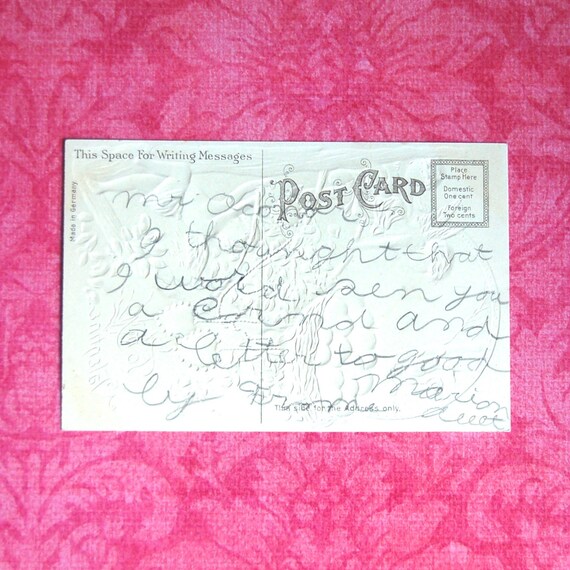 This Space For Writing Messages
POST CARD
Place
Stamp Here
Domestic
One cent
Foreign
Two cents
Made in Germany
mr
I thought that
I word sen you
a and
a letter to good
by From Marion
This side for the Address only.